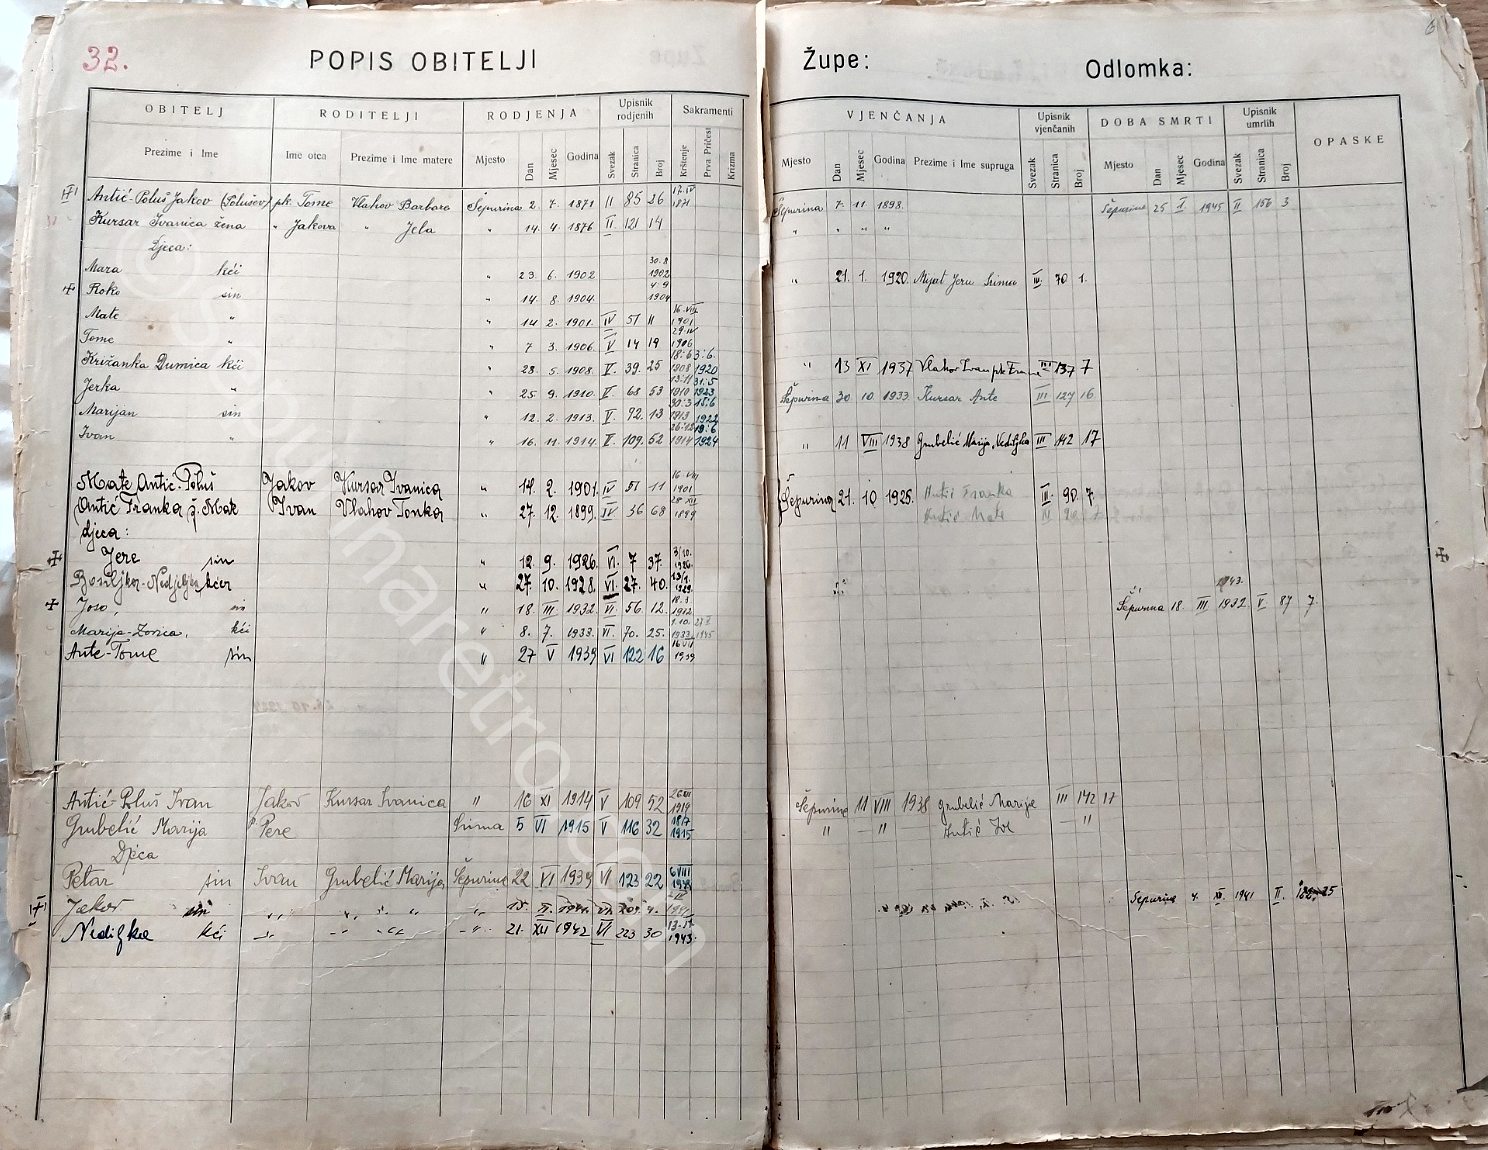 32.
POPIS OBITELJI
Župe:
Odlomka:
OBITELJ RODITELJI RODJENJA Upisnik rodjenih Sakramenti VJENČANJA Upisnik vjenčanih DOBA SMRTI Upisnik umrlih OPASKE
Prezime i Ime Ime otca Prezime i Ime matere Mjesto Dan Mjesec Godina Svezak Stranica Broj Krštenje Prva Pričest Krizma Mjesto Dan Mjesec Godina Prezime i Ime supruga Svezak Stranica Broj Mjesto Dan Mjesec Godina Svezak Stranica Broj
Antić-Poluš Jakov pk. Tome Vlahov Barbara Šepurina 2. 7. 1871 II 85 26 17. IV 1871 Šepurina 7. 11 1898. Šepurine 25 I. 1945 II 156 3
Kursar Ivanica žena " Jakova " Jela " 14. 4. 1876 II. 121 14 " " " "
Djeca:
Mara kći " 23. 6. 1902 30.8 1902 " 21. 1. 1920. Mijat Jeru III. 70 1.
Roko sin " 14. 8. 1904. 4 9 1904
Mate " " 14 2. 1901. IV 51 11 1901
Tome " " 7 3. 1906. V 14 19 29. IV 1906
Križanka Dumica kći " 28. 5. 1908. V. 39. 25 18. 6 1908 3. 6. 1920 " 13 XI 1937 Vlahov Ivan pk. III 137 7
Jerka " " 25 9. 1910. V. 68 53 13. 11 1910 31. 5 1923 Šepurina 30 10. 1933 Kursar Ante III 127 16
Marijan sin " 12. 2. 1913. V 92. 13 30. 3 1913 15. 6 1922
Ivan " " 16. 11. 1914. V. 109. 52 26. 12 1914 19. 6 1924 " 11 VIII 1938 Grubelić Marija, Nediljka III 142 17
Mate Antić-Poluš Jakov Kursar Ivanica " 14. 2. 1901. IV 51 11 16. VIII 1901 Šepurina 21. 10. 1925. Antić Franka III. 90. 7.
Antić Franka ž. Mate Ivan Vlahov Tonka " 27. 12. 1899. IV 36 68 28 XII 1899 Antić Mate
djeca:
Jere sin " 12. 9. 1926. VI. 7 37. 3/10. 1926.
Bosiljka-Nedjeljka kćer " 27. 10. 1928. VI. 27. 40. 1929.
1943.
Joso, sin " 18 III 1932. VI 56. 12. 18. 3. 1932 Šepurina 18. III 1932. V. 87 7.
Marija-Zorica, kći " 8. 7. 1933. VI. 70. 25. 1. 10. 1933
Ante-Tome sin " 27 V 1939 VI 122 16 16 VII 1939
Antić-Poluš Ivan Jakov Kursar Ivanica " 16 XI 1914 V 109 52 26 XII 1914 Šepurina 11 VIII 1938 Grubelić Marija III 142 17
Grubelić Marija Pere Srima 5 VI 1915 V 116 32 18/7 1915 " — " Antić — "
Djeca
Petar sin Ivan Grubelić Marija Šepurine 22 VI 1939 VI 123 22 6 VIII 1939
Jakov sin " " " " " VI. 209. 4. 1941 Šepurina 4. XI. 1941 II.
Nediljka kći -"- -"- -"- -"- 21. XII 1942 VI 223 30 1943.
© sepurinaretro.com